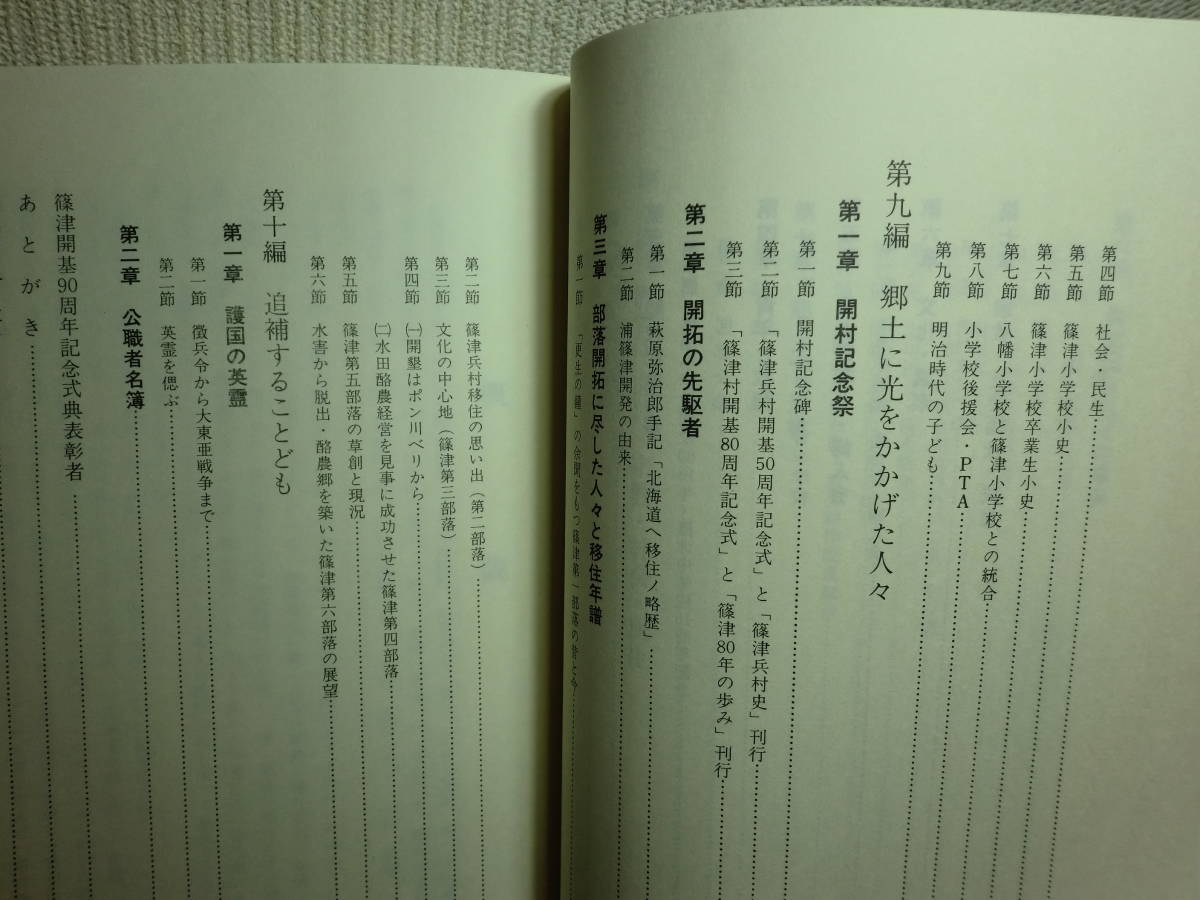 第四節　社会・民生
第五節　篠津小学校小史
第六節　篠津小学校卒業生小史
第七節　八幡小学校と篠津小学校との統合
第八節　小学校後援会・PTA
第九節　明治時代の子ども
第九編　郷土に光をかかげた人々
第一章　開村記念祭
第一節　開村記念碑
第二節　「篠津兵村開基50周年記念式」と「篠津兵村史」刊行
第三節　「篠津村開基80周年記念式」と「篠津80年の歩み」刊行
第二章　開拓の先駆者
第一節　萩原弥治郎手記「北海道へ移住ノ略歴」
第二節　浦篠津開発の由来
第三章　部落開拓に尽した人々と移住年譜
第一節　「更生の鐘」の余聞をもつ篠津第一部落の昔と今
第二節　篠津兵村移住の思い出（第二部落）
第三節　文化の中心地（篠津第三部落）
第四節　㈠開墾はポン川ベリから
㈡水田酪農経営を見事に成功させた篠津第四部落
第五節　篠津第五部落の草創と現況
第六節　水害から脱出・酪農郷を築いた篠津第六部落の展望
第十編　追補することども
第一章　護国の英霊
第一節　徴兵令から大東亜戦争まで
第二節　英霊を偲ぶ
第二章　公職者名簿
篠津開基90周年記念式典表彰者
あとがき